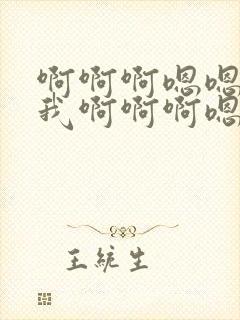 啊啊啊嗯嗯
我啊啊啊嗯
王统生